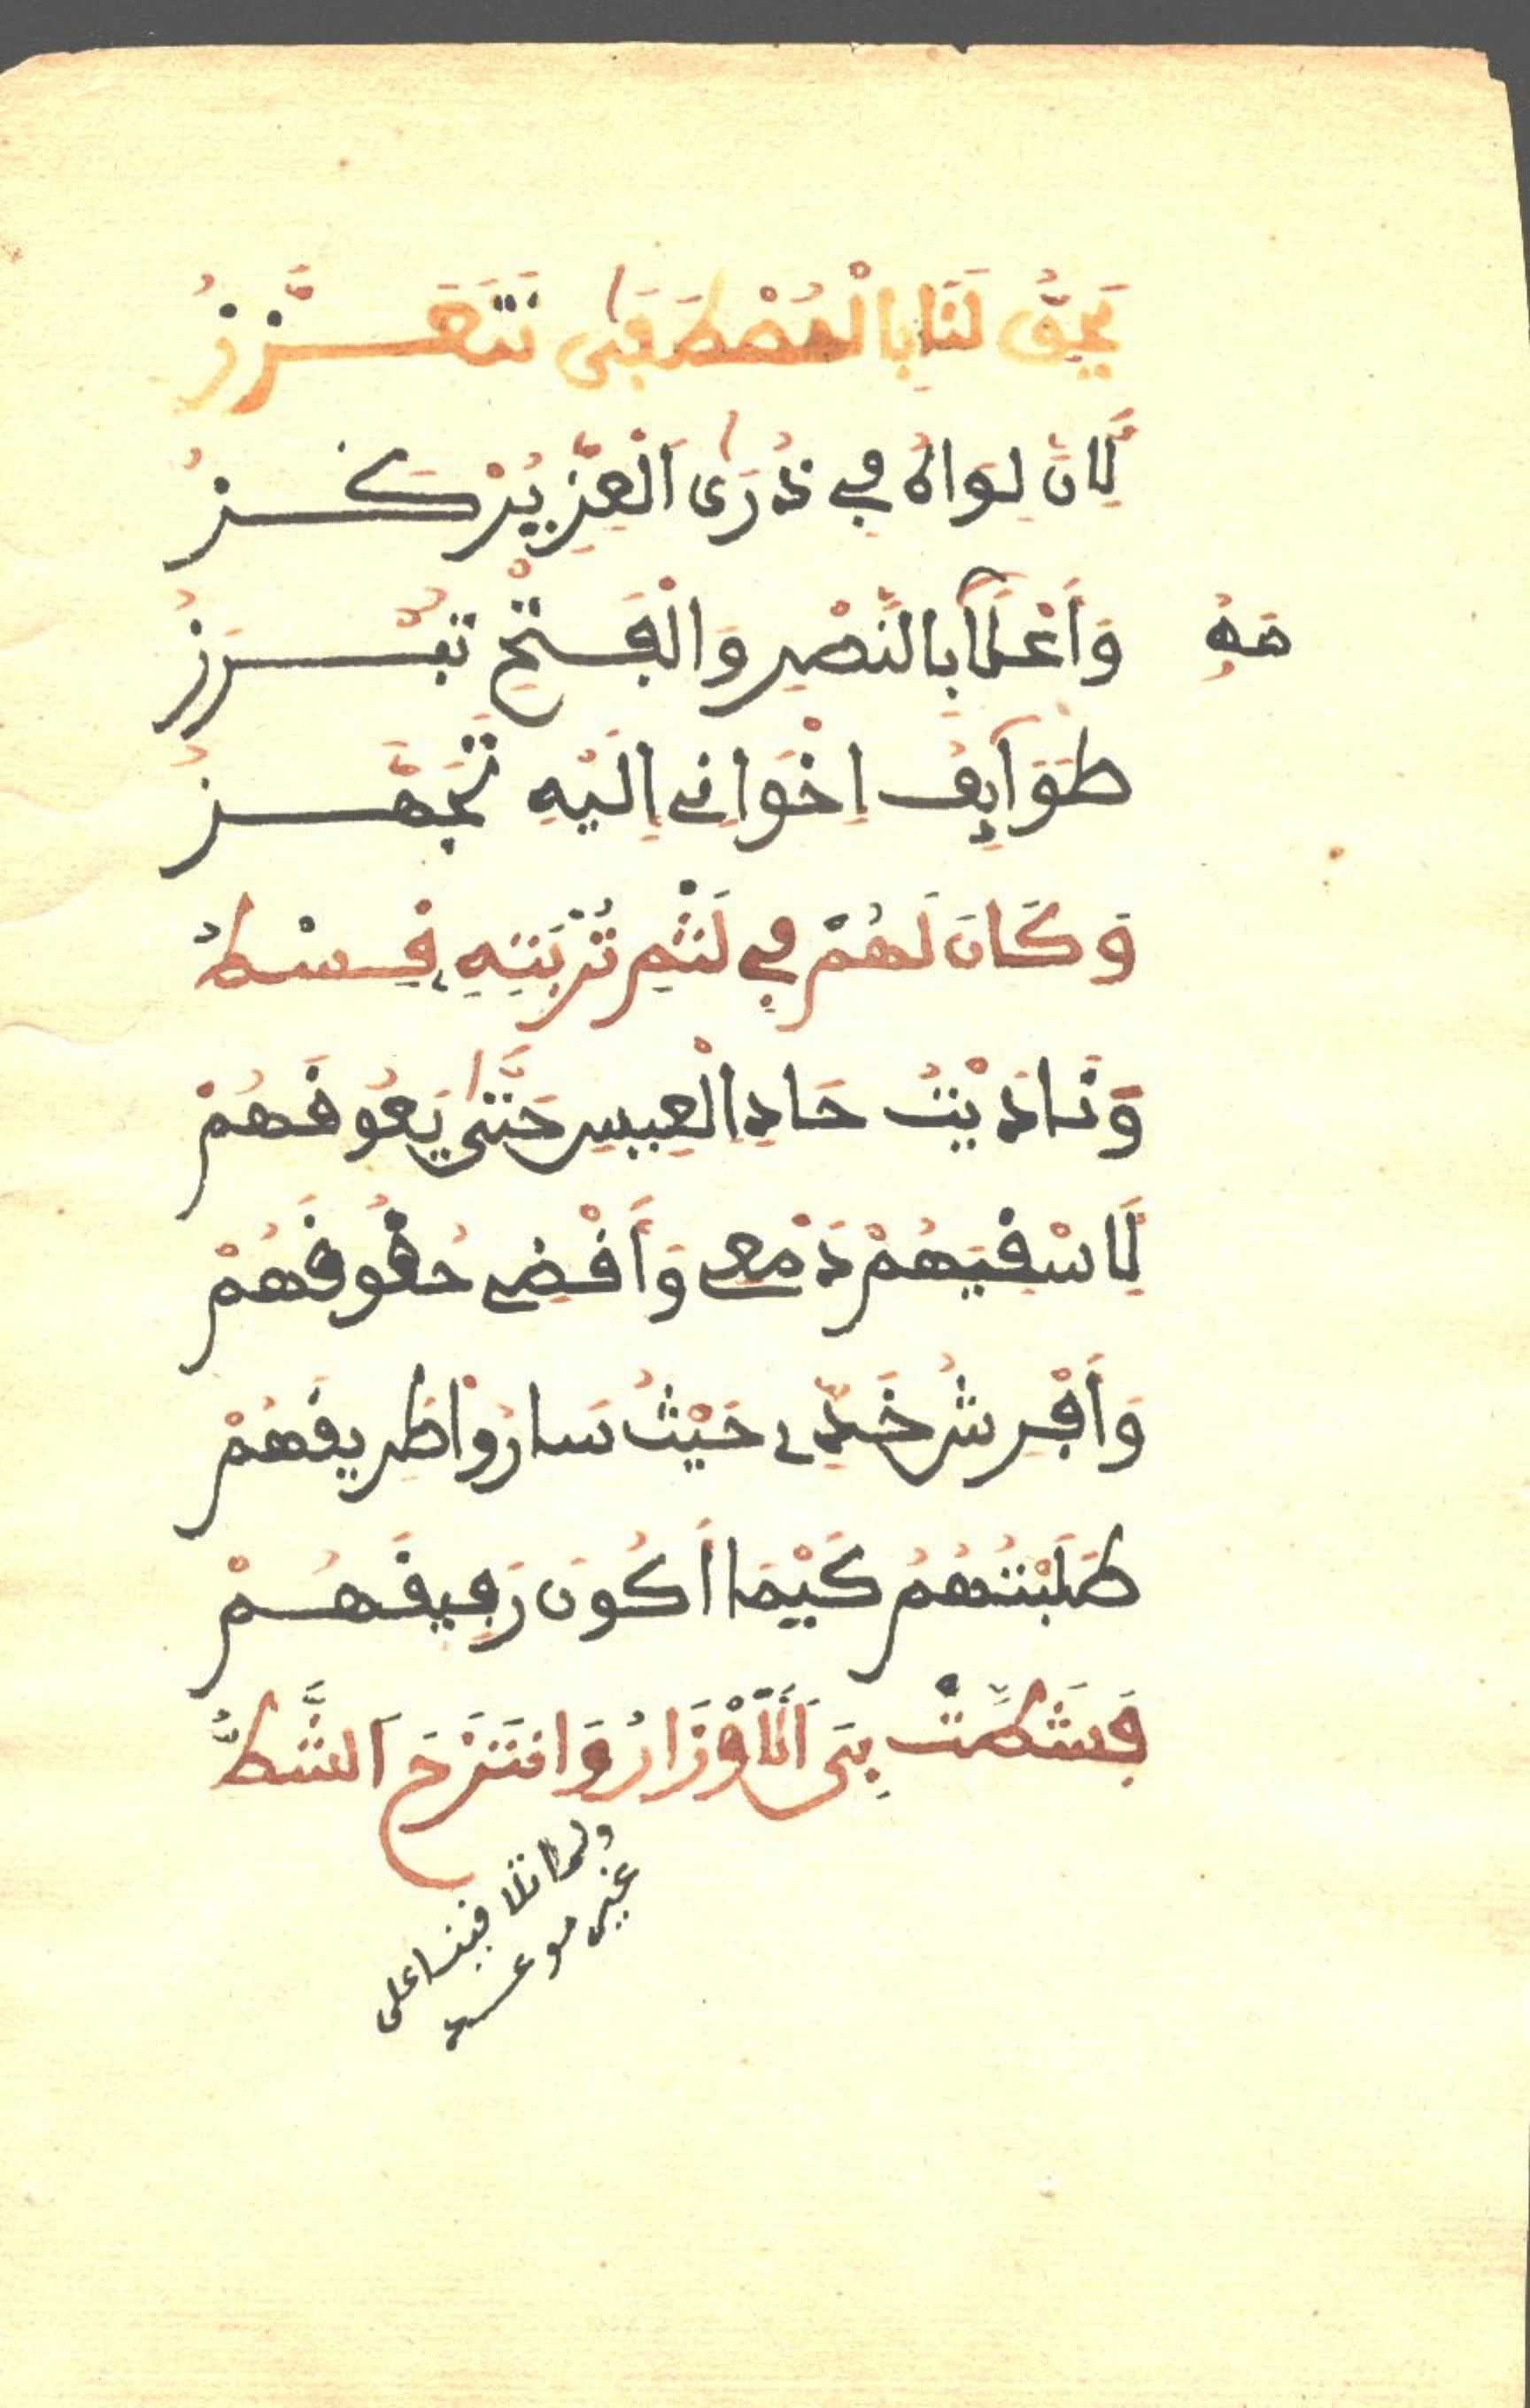 يَحِقُّ لَنَا بِالْمُصْطَفَى نَتَعَزَّزُ
لِأَنَّ لِوَاهُ فِي ذُرَى الْعِزِّ يُرْكَزُ
وَأَعْلَامُهُ بِالنَّصْرِ وَالْفَتْحِ تَبْرُزُ
طَوَآيِفُ إِخْوَانِي إِلَيْهِ تَجَهَّزُ
وَكَانَ لَهُمْ فِي لَثْمِ تُرْبَتِهِ قِسْطُ
وَنَادَيْتُ حَادِ الْعِيسِ حَتَّى يَعُوقَهُمْ
لِأَسْقِيَهُمْ دَمْعِي وَأَقْضِي حُقُوقَهُمْ
وَأَفْرِشُ خَدِّي حَيْثُ سَارُوا طَرِيقَهُمْ
طَلَبْتُهُمُ كَيْمَا أَكُونَ رَفِيقَهُمْ
فَشَطَّتْ بِيَ الْأَوْزَارُ وَانْتَزَحَ الشَّطُّ
ولما تلاقينا على
غير موعد